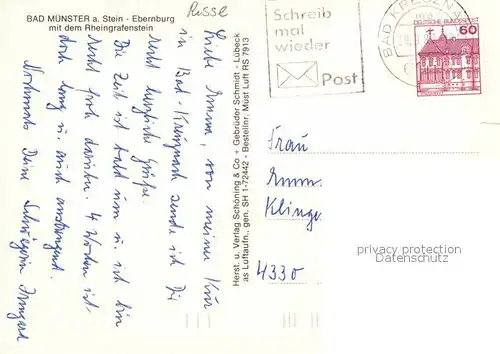 Risse
BAD MÜNSTER a. Stein - Ebernburg
mit dem Rheingrafenstein
Liebe Emma, von meiner Kur
in Bad-Kreuznach sende ich Dir
recht herzliche Grüße.
Die Zeit ist bald um u. ich bin
recht froh darüber. 4 Wochen ist
doch lang u. auch anstrengend.
Nochmals Deine Schwägerin Irmgard
Herst. u. Verlag Schöning & Co + Gebrüder Schmidt - Lübeck
as Luftaufn., gen. SH 1-72442 - Bestellnr. Müst Luft RS 7913
Schreib
mal
wieder
Post
BAD KREUZN
DEUTSCHE BUNDESPOST
60
Frau
Emm.
Klinge
4330
privacy protection
Datenschutz